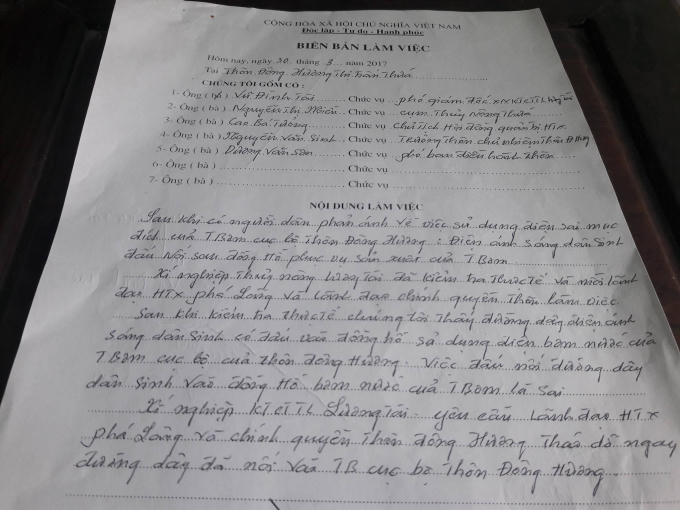 CỘNG HÒA XÃ HỘI CHỦ NGHĨA VIỆT NAM
Độc lập - Tự do - Hạnh phúc
BIÊN BẢN LÀM VIỆC
Hôm nay, ngày 30 tháng 3 năm 2017
Tại Thôn Đông Hương Thị trấn Thứa
CHÚNG TÔI GỒM CÓ :
1- Ông ( bà ) Vũ Đình Tài Chức vụ phó giám đốc XNKTCTTL
2- Ông ( bà ) Nguyễn Thị Chức vụ cụm Thủy nông Thứa
3- Ông ( bà ) Cao Bá Tường Chức vụ Chủ tịch Hội đồng quản trị HTX
4- Ông ( bà ) Nguyễn Văn Sinh Chức vụ Trưởng Thôn
5- Ông ( bà ) Dương Văn Chức vụ phó ban điều hành thôn
6- Ông ( bà ) Chức vụ
7- Ông ( bà ) Chức vụ
NỘI DUNG LÀM VIỆC
Sau khi có người dân phản ánh về việc sử dụng điện sai mục
đích của TBơm cục bộ thôn Đông Hương : Điện ánh sáng dân sinh
đấu nối sau đồng hồ phục vụ sản xuất của TBơm
Xí nghiệp thủy nông Lương Tài đã kiểm tra thực tế và mời lãnh
đạo HTX phá Lãng và lãnh đạo chính quyền Thôn làm việc
Sau khi kiểm tra thực tế chúng tôi thấy đường dây điện ánh
sáng dân sinh có đấu vào đồng hồ sử dụng điện bơm nước của
TBơm cục bộ của thôn Đông Hương. Việc đấu nối đường dây
dân sinh vào đồng hồ bơm nước của TBơm là sai
Xí nghiệp KTCTTL Lương Tài yêu cầu lãnh đạo HTX
phá Lãng và chính quyền thôn đông Hương tháo dỡ ngay
đường dây đã nối vào TB cục bộ thôn Đông Hương.